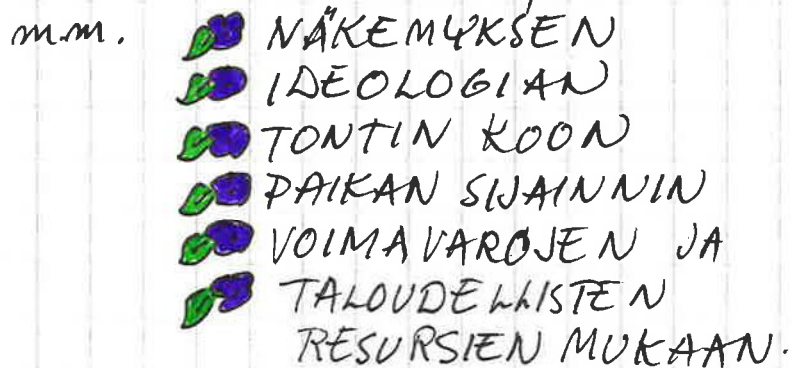 m.m. NÄKEMYKSEN
IDEOLOGIAN
TONTIN KOON
PAIKAN SIJAINNIN
VOIMAVAROJEN JA
TALOUDELLISTEN
RESURSIEN MUKAAN.